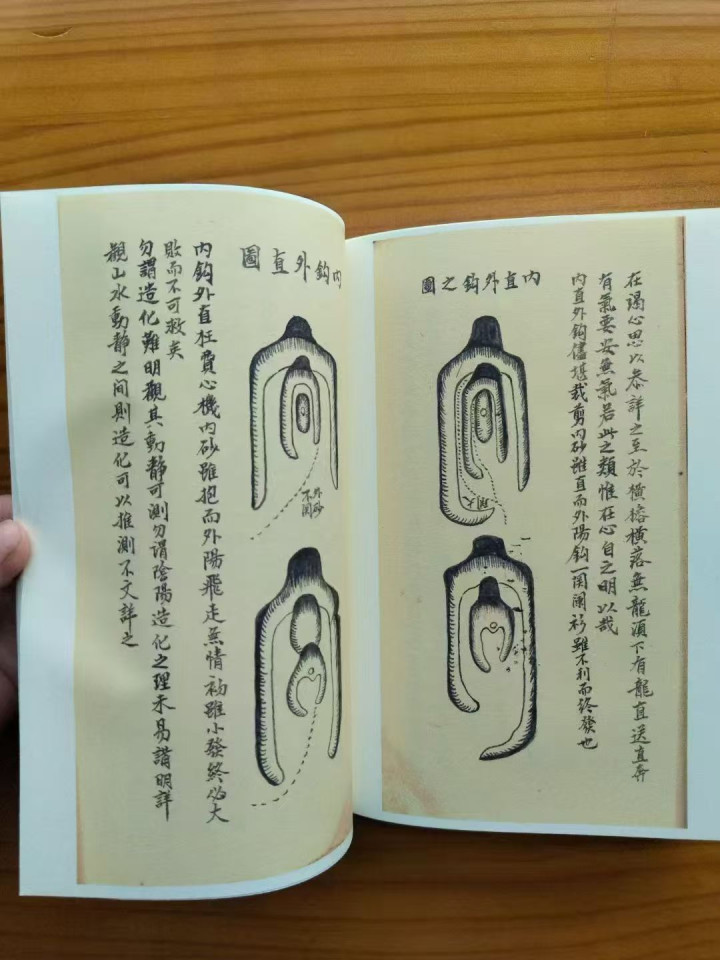 在竭心思以叅詳之至於橫樑橫落無龍須下有龍直送直奔
有氣要安無氣若此之類惟在心自之明以哉
內直外鈎儘堪裁剪內砂雖直而外陽鈎一関闌初雖不利而終發也
內直外鈎之圖
內鈎外直圖
外砂
不関
內鈎外直枉費心機內砂雖抱而外陽飛走無情初雖小發終必大
敗而不可救矣
勿謂造化難明觀其動靜可測勿謂陰陽造化之理未易講明詳
觀山水動靜之間則造化可以推測不文詳之